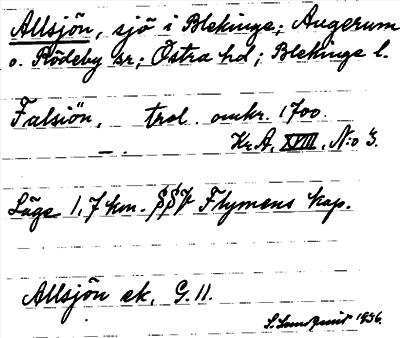 Allsjön, sjö i Blekinge; Augerum
o. Rödeby sr; Östra hd; Blekinge l.
Falsiön, trol. omkr. 1700.
— .. — Kr.A, XVIII, N:o 3.
Läge 1,7 km. SSV Flymens kap.
Allsjön ek, G.11.
S. Landqvist 1936.